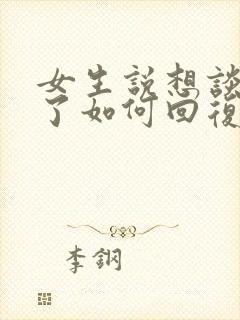 女生説想談
了如何回復
李鋼